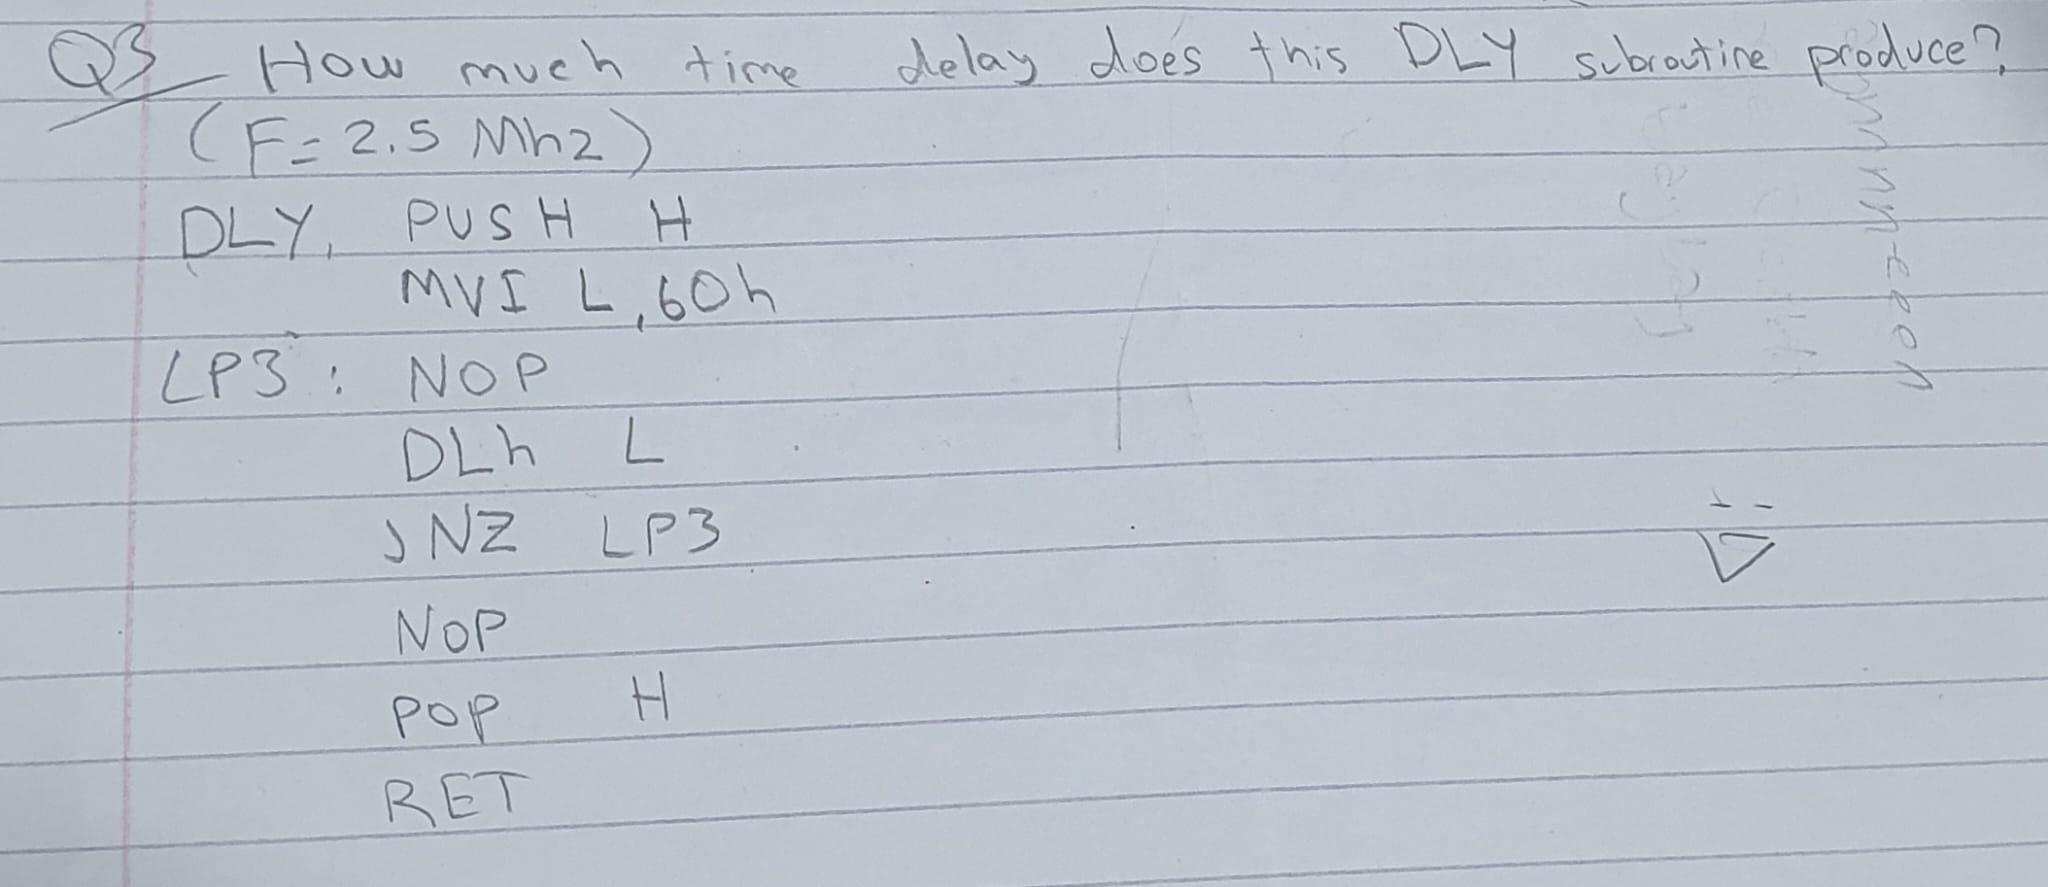 Q3 How much time delay does this DLY subroutine produce?
(F=2.5 Mhz)
DLY, PUSH H
MVI L,60h
LP3: NOP
DLh L
JNZ LP3
NOP
POP H
RET